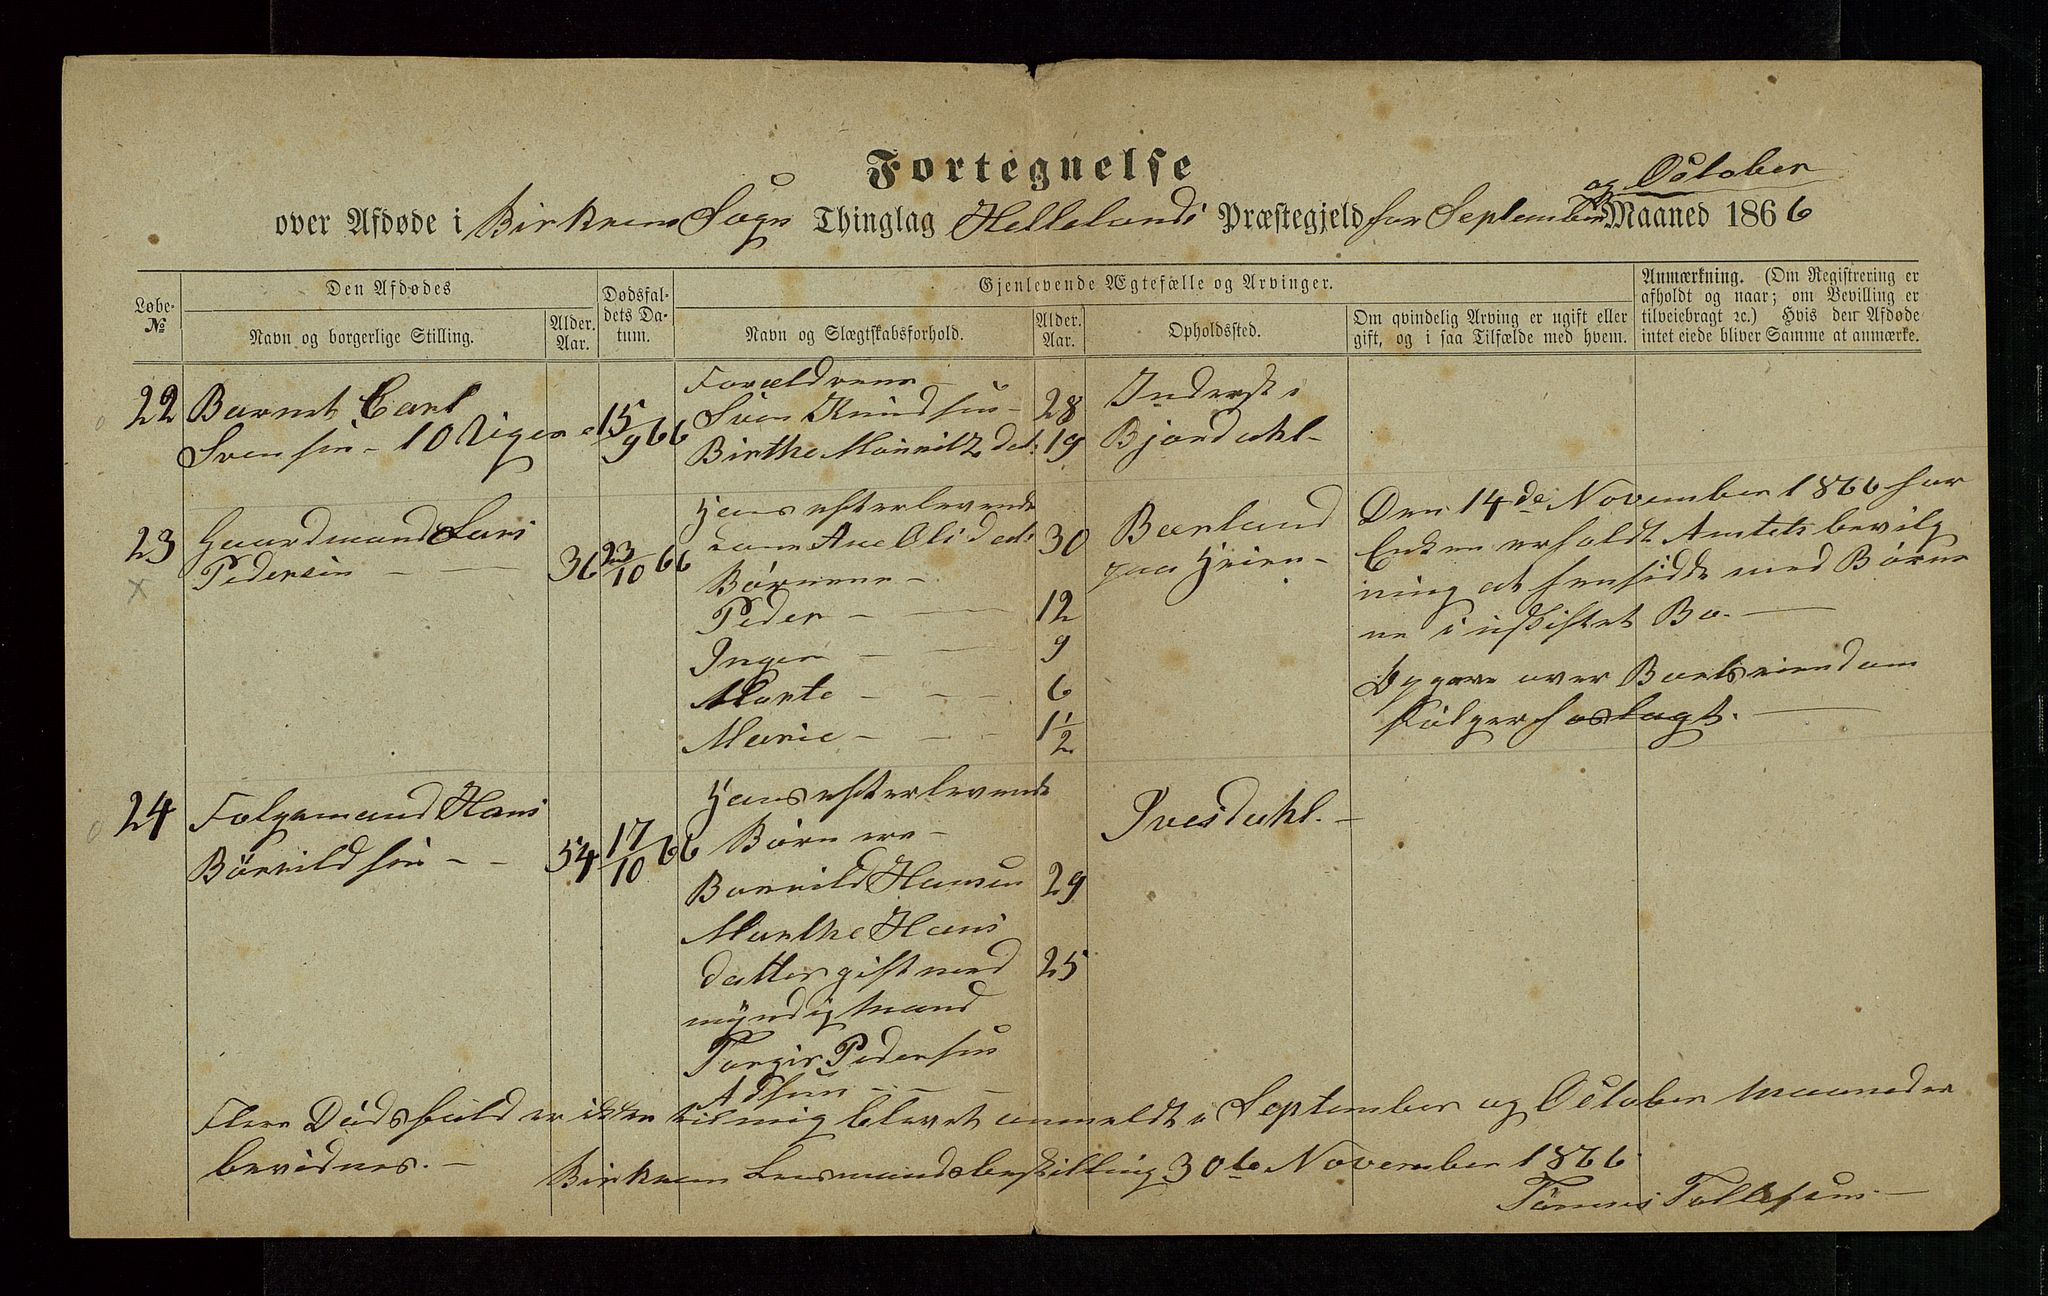 Fortegnelse
og October
over Afdøde i Birkrem Sogn Thinglag Hellelands Præstegjeld for September Maaned 1866
Løbe-
№
Den Afdødes
Navn og borgerlige Stilling.
Alder.
Aar.
Dødsfal-
dets Da-
tum.
Gjenlevende Ægtefælle og Arvinger.
Navn og Slægtskabsforhold.
Alder.
Aar.
Opholdssted.
Om qvindelig Arving er ugift eller
gift, og i saa Tilfælde med hvem.
Anmærkning. (Om Registrering er
afholdt og naar; om Bevilling er
tilveiebragt ꝛc.) Hvis den Afdøde
intet eiede bliver Samme at anmærke.
22 Barnet Carl
Svensen - 10 Uger
15/9 66
Forældrene
Sven Knudsen - 28
Birthe Mauritzdat: 19
Inderst i
Bjordahl -
23 Gaardmand Lars
Pedersen - - 36 23/10 66
Hans efterlevende
Kone Ane Olsdat: 30
Børnene -
Peder - - 12
Inger - - 9
Marte - - 6
Marie - - 1½
Bærland
paa Heien -
Den 14de November 1866 har
Enken erholdt Amtets bevilg
ning at hensidde med Børne
ne i uskiftet Bo. -
Opgave over Boets eiendom
følger hoslagt. -
24 Folgemand Hans
Børrildsen - - 54 17/10 66
Hans efterlevende
Børn ere -
Borrild Hansen 29
Marthe Hans
datter gift med 25
myndig Mand
Torger Pedersen
Ivesdahl. -
Flere Dødsfald er ikke til mig blevet anmeldt i September og October Maaneder
bevidnes. -
Birkrem Lensmandsbestilling 30te November 1866
Tønnes Tollefsen. -